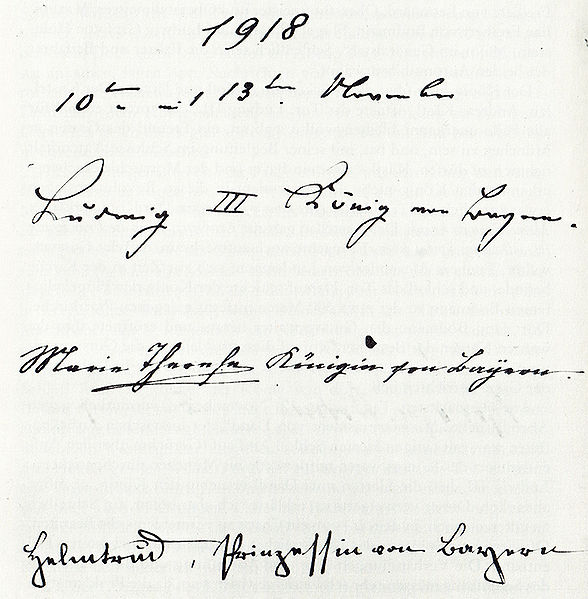 1918
10ten u. mit 13ten November
Ludwig III König von Bayern.
Marie Therese Königin von Bayern.
Helmtrud, Prinzessin von Bayern